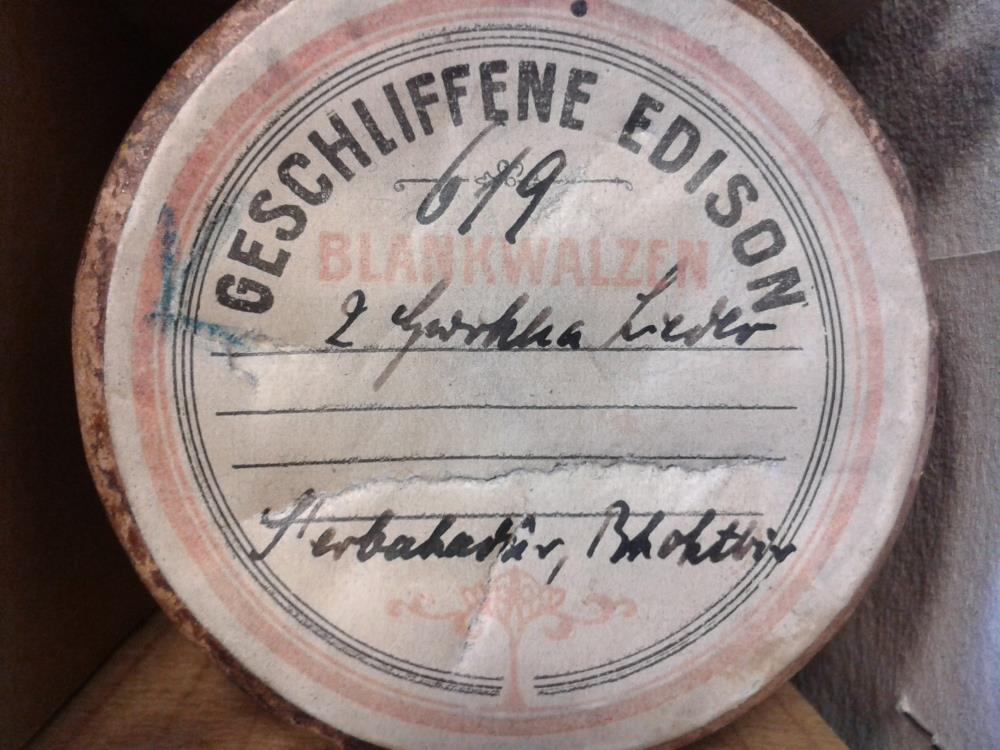 GESCHLIFFENE EDISON
619
BLANKWALZEN
2 Gurkha Lieder
Herbahadûr, Bhoktbir